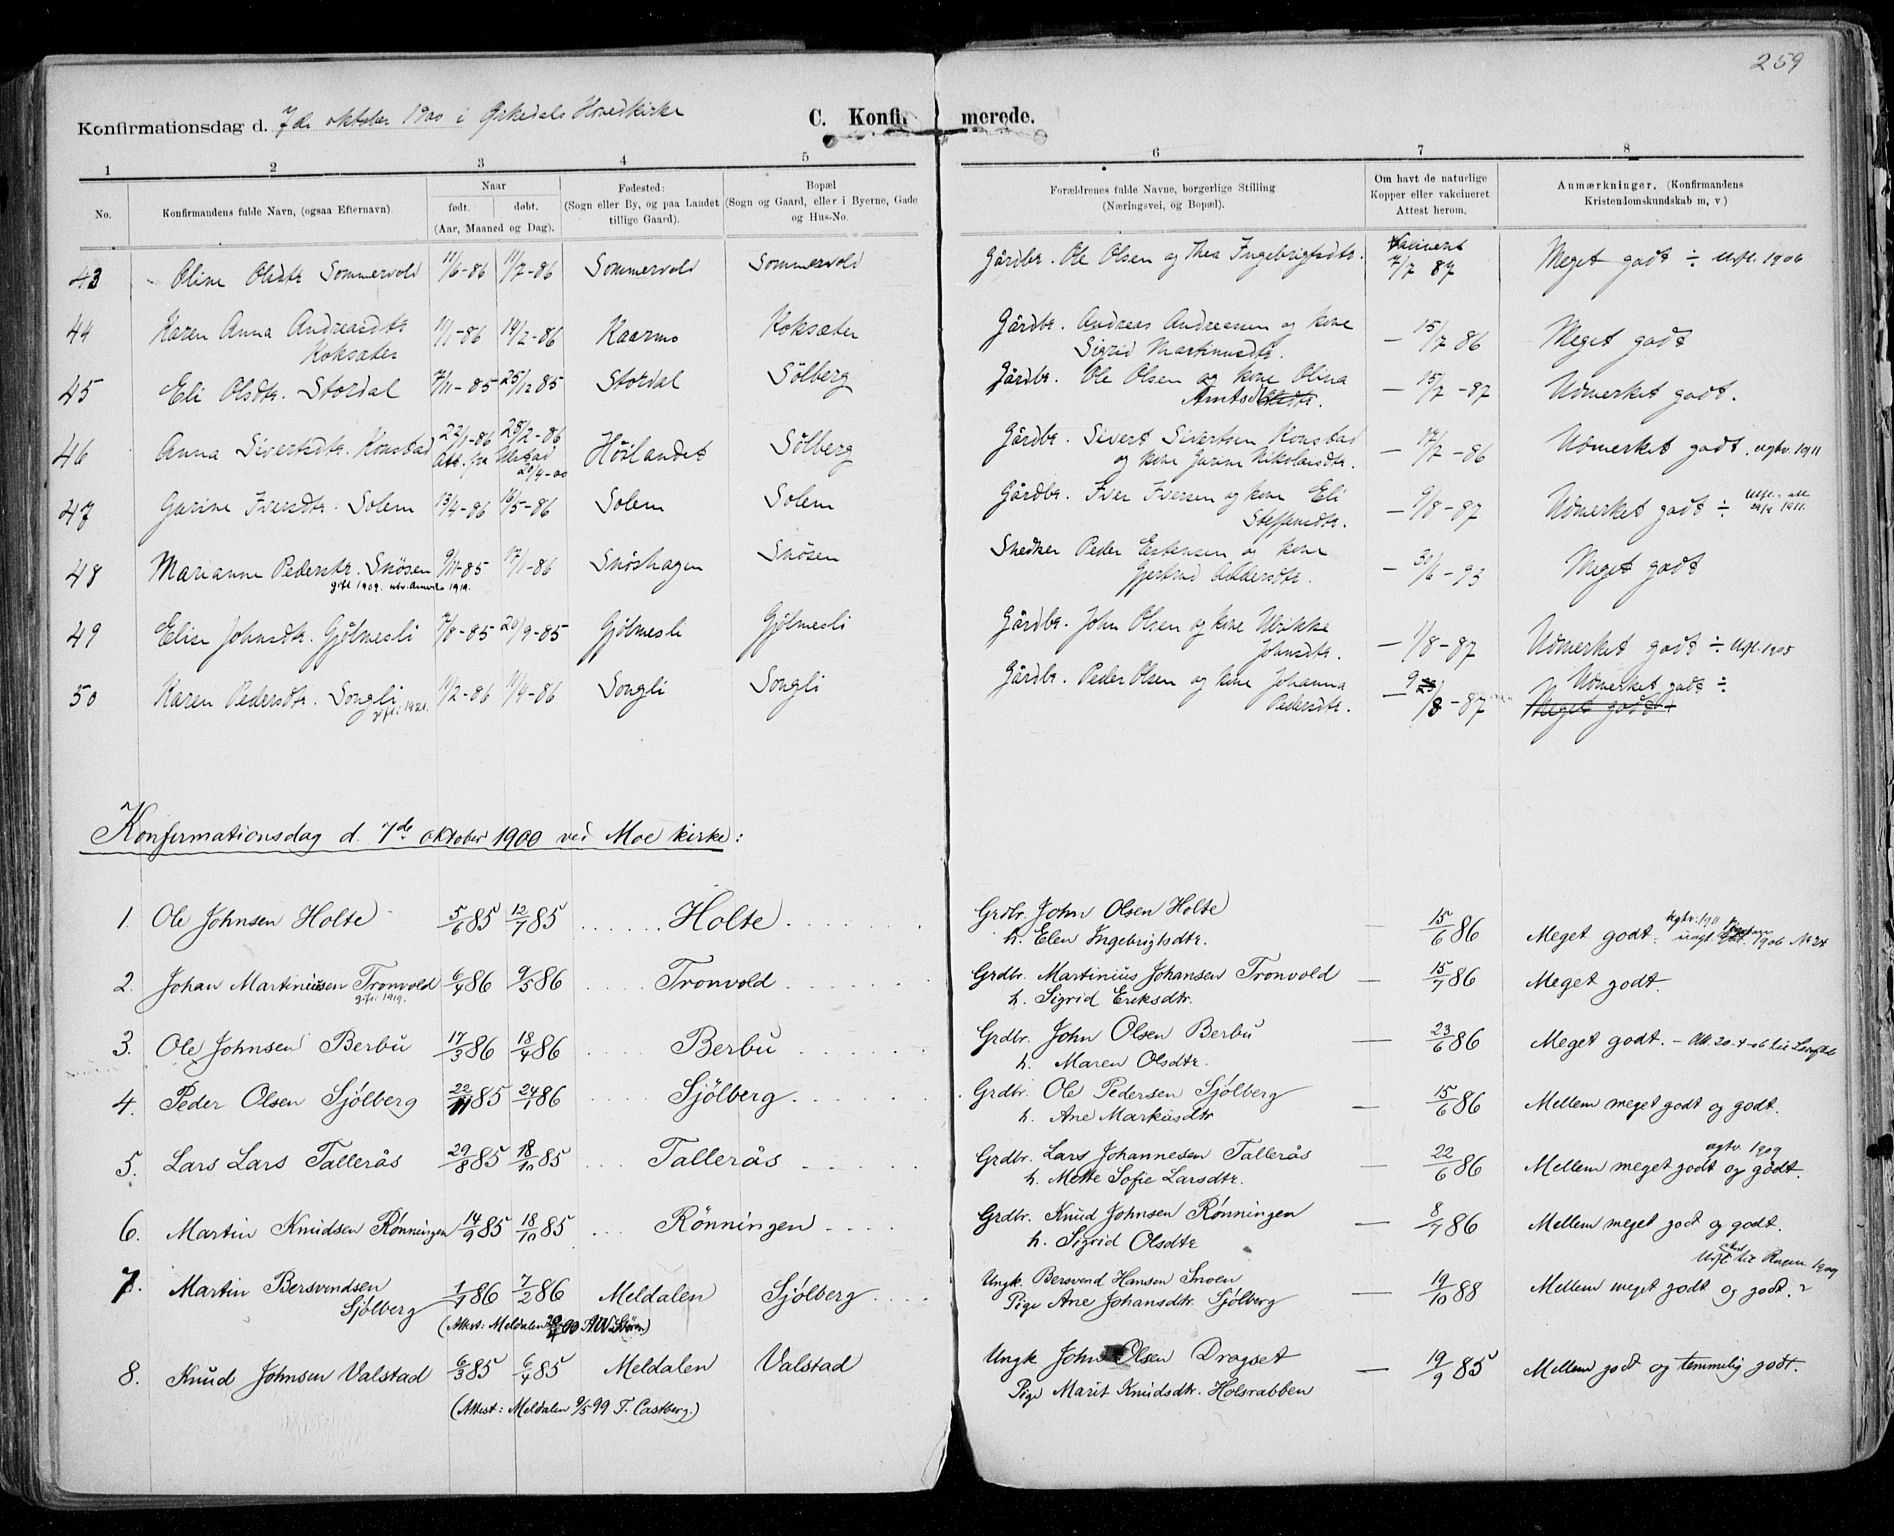 259
Konfirmationsdag d. 7de oktober 1900 i Ørkedals Hovedkirke
C. Konfirmerede.
1 2 3 4 5 6 7 8
No. Konfirmandens fulde Navn, (ogsaa Efternavn) Naar født. døbt. (Aar, Maaned og Dag). Fødested: (Sogn eller By, og paa Landet tillige Gaard). Bopæl (Sogn og Gaard, eller i Byerne, Gade og Hus-No. Forældrenes fulde Navne, borgerlige Stilling (Næringsvei, og Bopæl). Om havt de naturlige Kopper eller vakcineret Attest herom. Anmærkninger, (Konfirmandens Kristendomskundskab m, v)
43 Oline Olsdtr Sommervold 11/6-86 11/7-86 Sommervold Sommervold Gårdbr. Ole Olsen og Thea Ingebrigtsdtr. Vakcineret 7/7 87 Meget godt ÷ Utfl. 1906
44 Karen Anna Andreasdtr 11/1-86 14/2-86 Kaarmo Koksæter Gårdbr. Andreas Andreassen og kone — 15/7 86 Meget godt
Koksæter Sigrid Markusdtr.
45 Eli Olsdtr. Stordal 7/11-85 25/12 85 Stordal Sølberg Gårdbr. Ole Olsen og kone Olina — 15/7-87 Udmerket godt.
Arntsdtr.
46 Anna Sivertsdtr. Konstad 22/1-86 28/2-86 Höilandet Sølberg Gårdbr. Sivert Sivertsen Konstad — 17/7-86 Udmerket godt. ugtv. 1911
Att. fra 20/4-00 og kone Gurine Nikolaisdtr.
47 Gurine Iversdtr. Solem 13/4-86 16/5-86 Solem Solem Gårdbr. Iver Iversen og kone Eli — 9/8-87 Udmerket godt ÷ Utfl. att 1911.
Steffensdtr.
48 Marianne Pedersdtr. Snösen 9/11-85 17/1-86 Snöshagen Snösen Snedker Peder Estensen og kone — 30/6-93 Meget godt
gift 1909. utv. Amerika 1910. Gjertrud
49 Elise Johnsdtr. Gjölmesli 7/8-85 20/9-85 Gjölmesli Gjölmesli Gårdbr. John Olsen og kone Ulrikke — 1/8-87 Udmerket godt ÷ Utfl. 1905
Johnsdtr.
50 Karen Pedersdtr. Songli 11/2-86 11/4-86 Songli Songli Gårdbr. Peder Olsen og kone Johanna — 9/8-87 Udmerket godt ÷
gift: 1921. Pedersdtr. Meget godt
Konfirmationsdag d. 7de oktober 1900 ved Moe kirke:
1. Ole Johnsen Holte 5/6 85 12/7 85 Holte Grdbr. John Olsen Holte — 15/6 86 Meget godt. ugtv: 1911 1906 No 24
h. Elen Ingebrigtsdtr.
2. Johan Martiniussen Tronvold 6/4 86 9/5 86 Tronvold Grdbr. Martinius Johansen Tronvold — 15/7 86 Meget godt.
gift: 1919. h. Sigrid Eriksdtr.
3. Ole Johnsen Berbu 17/3 86 18/4 86 Berbu Grdbr. John Olsen Berbu — 23/6 86 Meget godt. - Att. 20-4-06 til
h. Maren Olsdtr.
4. Peder Olsen Sjölberg 22/11 85 24/1 86 Sjölberg Grdbr. Ole Pedersen Sjölberg — 15/6 86 Mellem meget godt og godt.
h. Ane Markusdtr
5. Lars Lars Tallerås 29/8 85 18/10 85 Tallerås Grdbr. Lars Johannesen Tallerås — 22/6 86 Mellem meget godt og godt. ugtv. 1909
h. Mette Sofie Larsdtr.
6. Martin Knudsen Rönningen 14/9 85 18/10 85 Rönningen Grdbr. Knud Johnsen Rönningen — 8/7 86 Mellem meget godt og godt.
h. Sigrid Olsdtr
7. Martin Bersvendsen 1/1 86 7/2 86 Meldalen Sjölberg Ungk. Bersvend Hansen Snoen — 19/10 88 Mellem meget godt og godt. 1909
Sjölberg Pige Ane Johansdtr. Sjölberg
(Attest: Meldalen 00)
8. Knud Johnsen Valstad 6/3 85 6/4 85 Meldalen Valstad Ungk John Olsen Dragset — 19/9 85 Mellem godt og temmelig godt.
Pige Marit Knudsdtr. Holsrabben
(Attest: Meldalen 9/5 99 T. Castberg.)